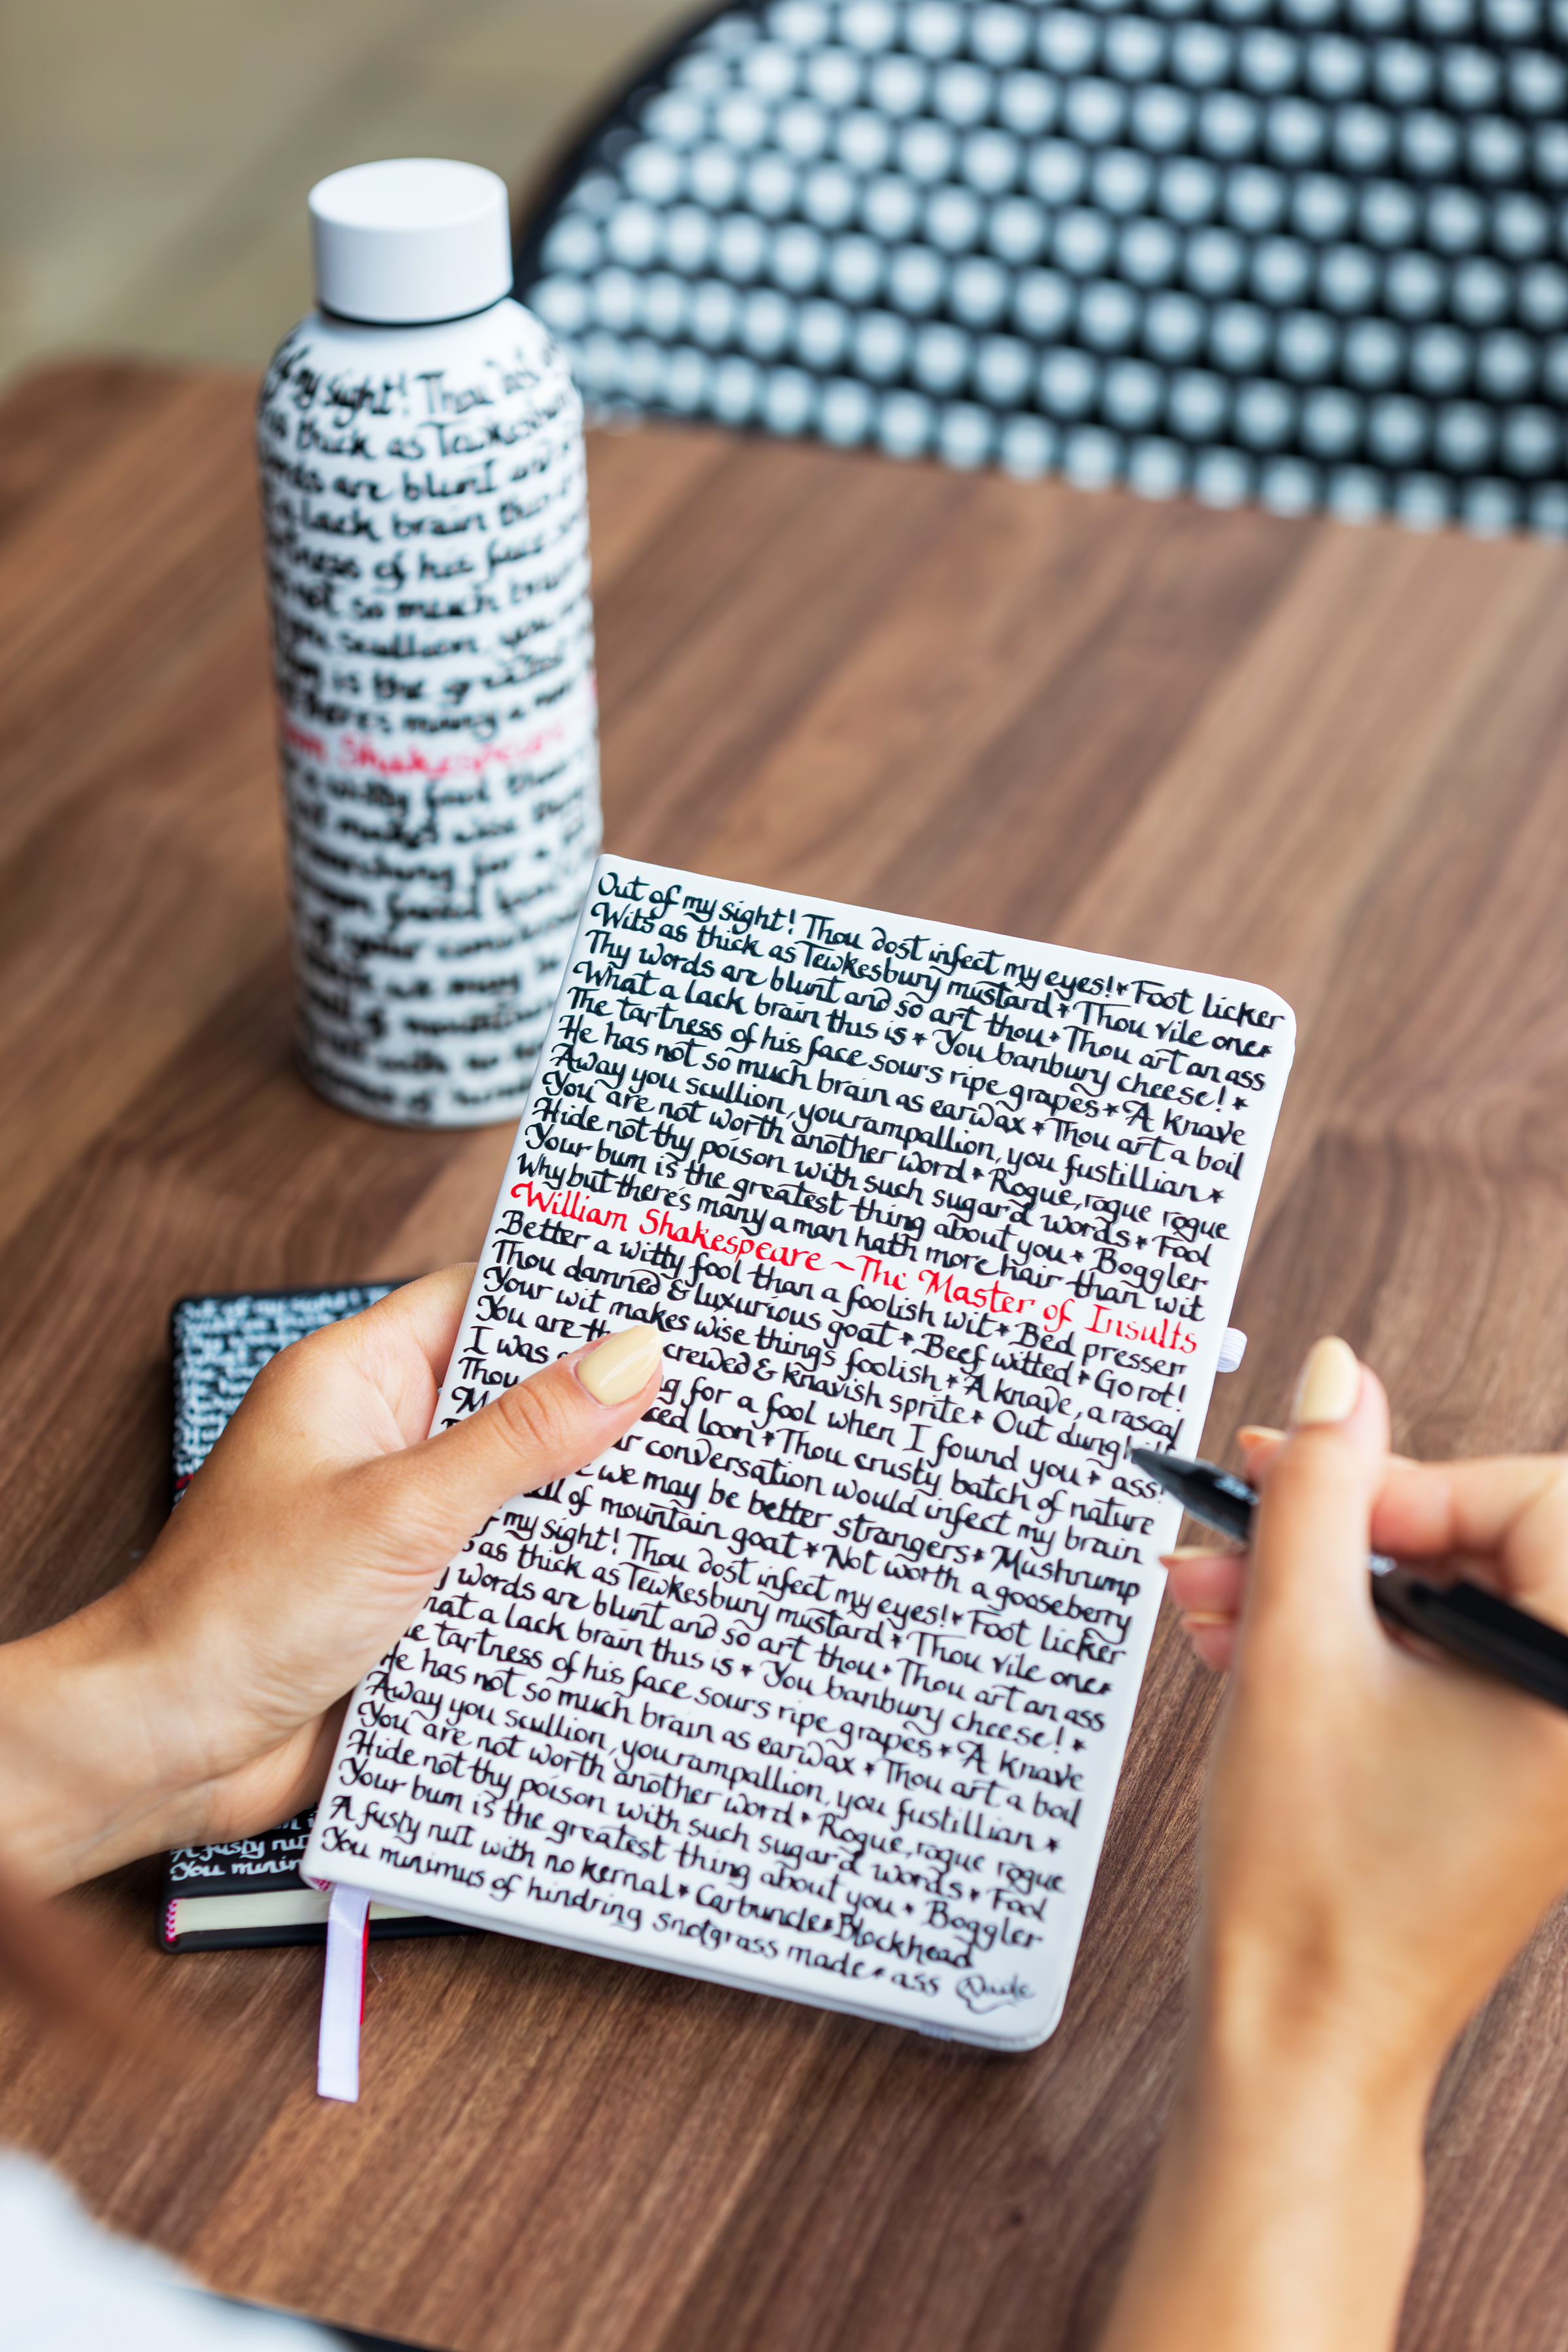 my sight! Thou
thick as Tewkesbury
are blunt and
lack brain this
of his face
not so much brain
scullion, you
is the greatest
there's many a man
Shakespeare
witty fool than
makes wise things
searching for a
of your
we may be
of mountain
with no
of
Out of my sight! Thou dost infect my eyes!* Foot licker
Wits as thick as Tewkesbury mustard * Thou vile one*
Thy words are blunt and so art thou * Thou art an ass
What a lack brain this is * You banbury cheese! *
The tartness of his face sours ripe grapes * A knave
He has not so much brain as earwax * Thou art a boil
Away you scullion, you rampallion, you fustillian *
You are not worth another word * Rogue, rogue rogue
Hide not thy poison with such sugar'd words * Fool
Your bum is the greatest thing about you * Boggler
Why but there's many a man hath more hair than wit
William Shakespeare ~ The Master of Insults
Better a witty fool than a foolish wit * Bed presser
Thou damned & luxurious goat * Beef witted * Go rot!
Your wit makes wise things foolish * A knave, a rascal
You are crewed & knavish sprite * Out dunghill
I was g for a fool when I found you * ass
Thou ced loon * Thou crusty batch of nature
conversation would infect my brain
we may be better strangers * Mushrump
of mountain goat * Not worth a gooseberry
my sight! Thou dost infect my eyes!* Foot licker
as thick as Tewkesbury mustard * Thou vile one*
words are blunt and so art thou * Thou art an ass
hat a lack brain this is * You banbury cheese! *
tartness of his face sours ripe grapes * A knave
He has not so much brain as earwax * Thou art a boil
Away you scullion, you rampallion, you fustillian *
You are not worth another word * Rogue, rogue rogue
Hide not thy poison with such sugar'd words * Fool
Your bum is the greatest thing about you * Boggler
A fusty nut with no kernal * Carbuncle * Blockhead
You minimus of hindring knotgrass made * ass
A fusty nut
You minim